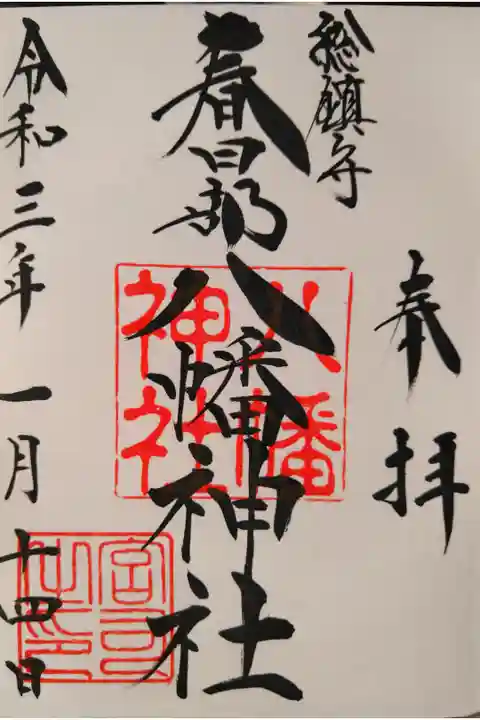 奉拝
総鎮守
春日部八幡神社
八幡
神社
令和三年一月十四日
宮司之印